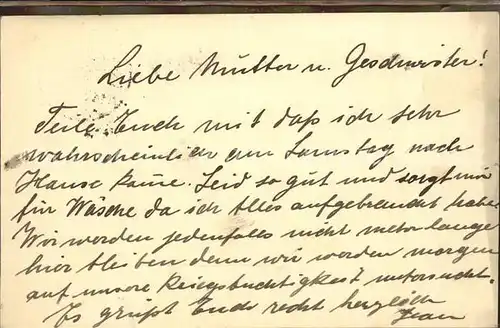 Liebe Mutter u. Geschwister!
Teile Euch mit daß ich sehr
wahrscheinlich am Samstag nach
Hause kome. Seid so gut und sorgt mir
für Wäsche da ich Alles aufgebraucht habe
Wir werden jedenfalls nicht mehr lange
hier bleiben denn wir werden morgen
auf unsere Kriegstuchtigkeit untersucht.
Es grüßt Euch recht herzlich